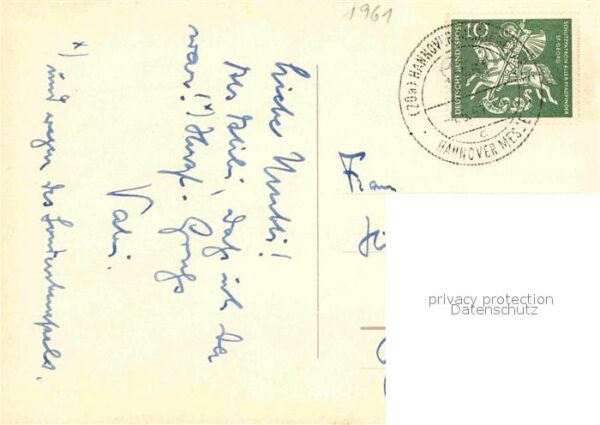 1961
Liebe Mutti!
Als Gruß, daß ich da
war! *) Herzl. Gruß
Vati.
*) und wegen des Sonderstempels.
Frau
10
DEUTSCHE BUNDESPOST
SCHUTZPATRON ALLER PFADFINDER
ST. GEORG
(20a) HANNOVER
HANNOVER MESSE
c
privacy protection
Datenschutz